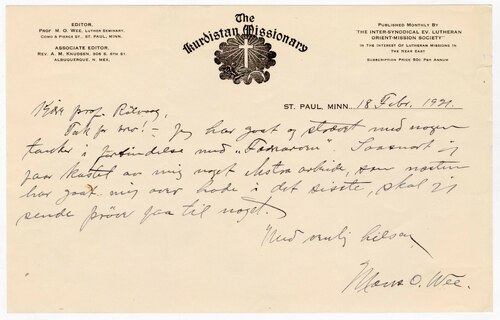 The
Kurdistan Missionary
EDITOR,
PROF. M. O. WEE, LUTHER SEMINARY,
COMO & PIERCE ST., ST. PAUL, MINN.
ASSOCIATE EDITOR,
REV. A. M. KNUDSEN, 306 S. 6TH ST.
ALBUQUERQUE, N. MEX.
PUBLISHED MONTHLY BY
THE INTER-SYNODICAL EV. LUTHERAN
ORIENT-MISSION SOCIETY
IN THE INTEREST OF LUTHERAN MISSIONS IN
THE NEAR EAST
SUBSCRIPTION PRICE 50C PER ANNUM
ST. PAUL, MINN. 18 Febr. 1921.
Kjære prof. Rölvaag,
Tak for sist! — Jeg har gaat og strævet med nogen
tanker i forbindelse med „ “ Saasnart jeg
faar kastet av mig noget ekstra arbeide, som næsten
har gaat mig over hode i det sisste, skal jeg
sende pröve paa til noget.
Med venlig hilsen,
Mons O. Wee.